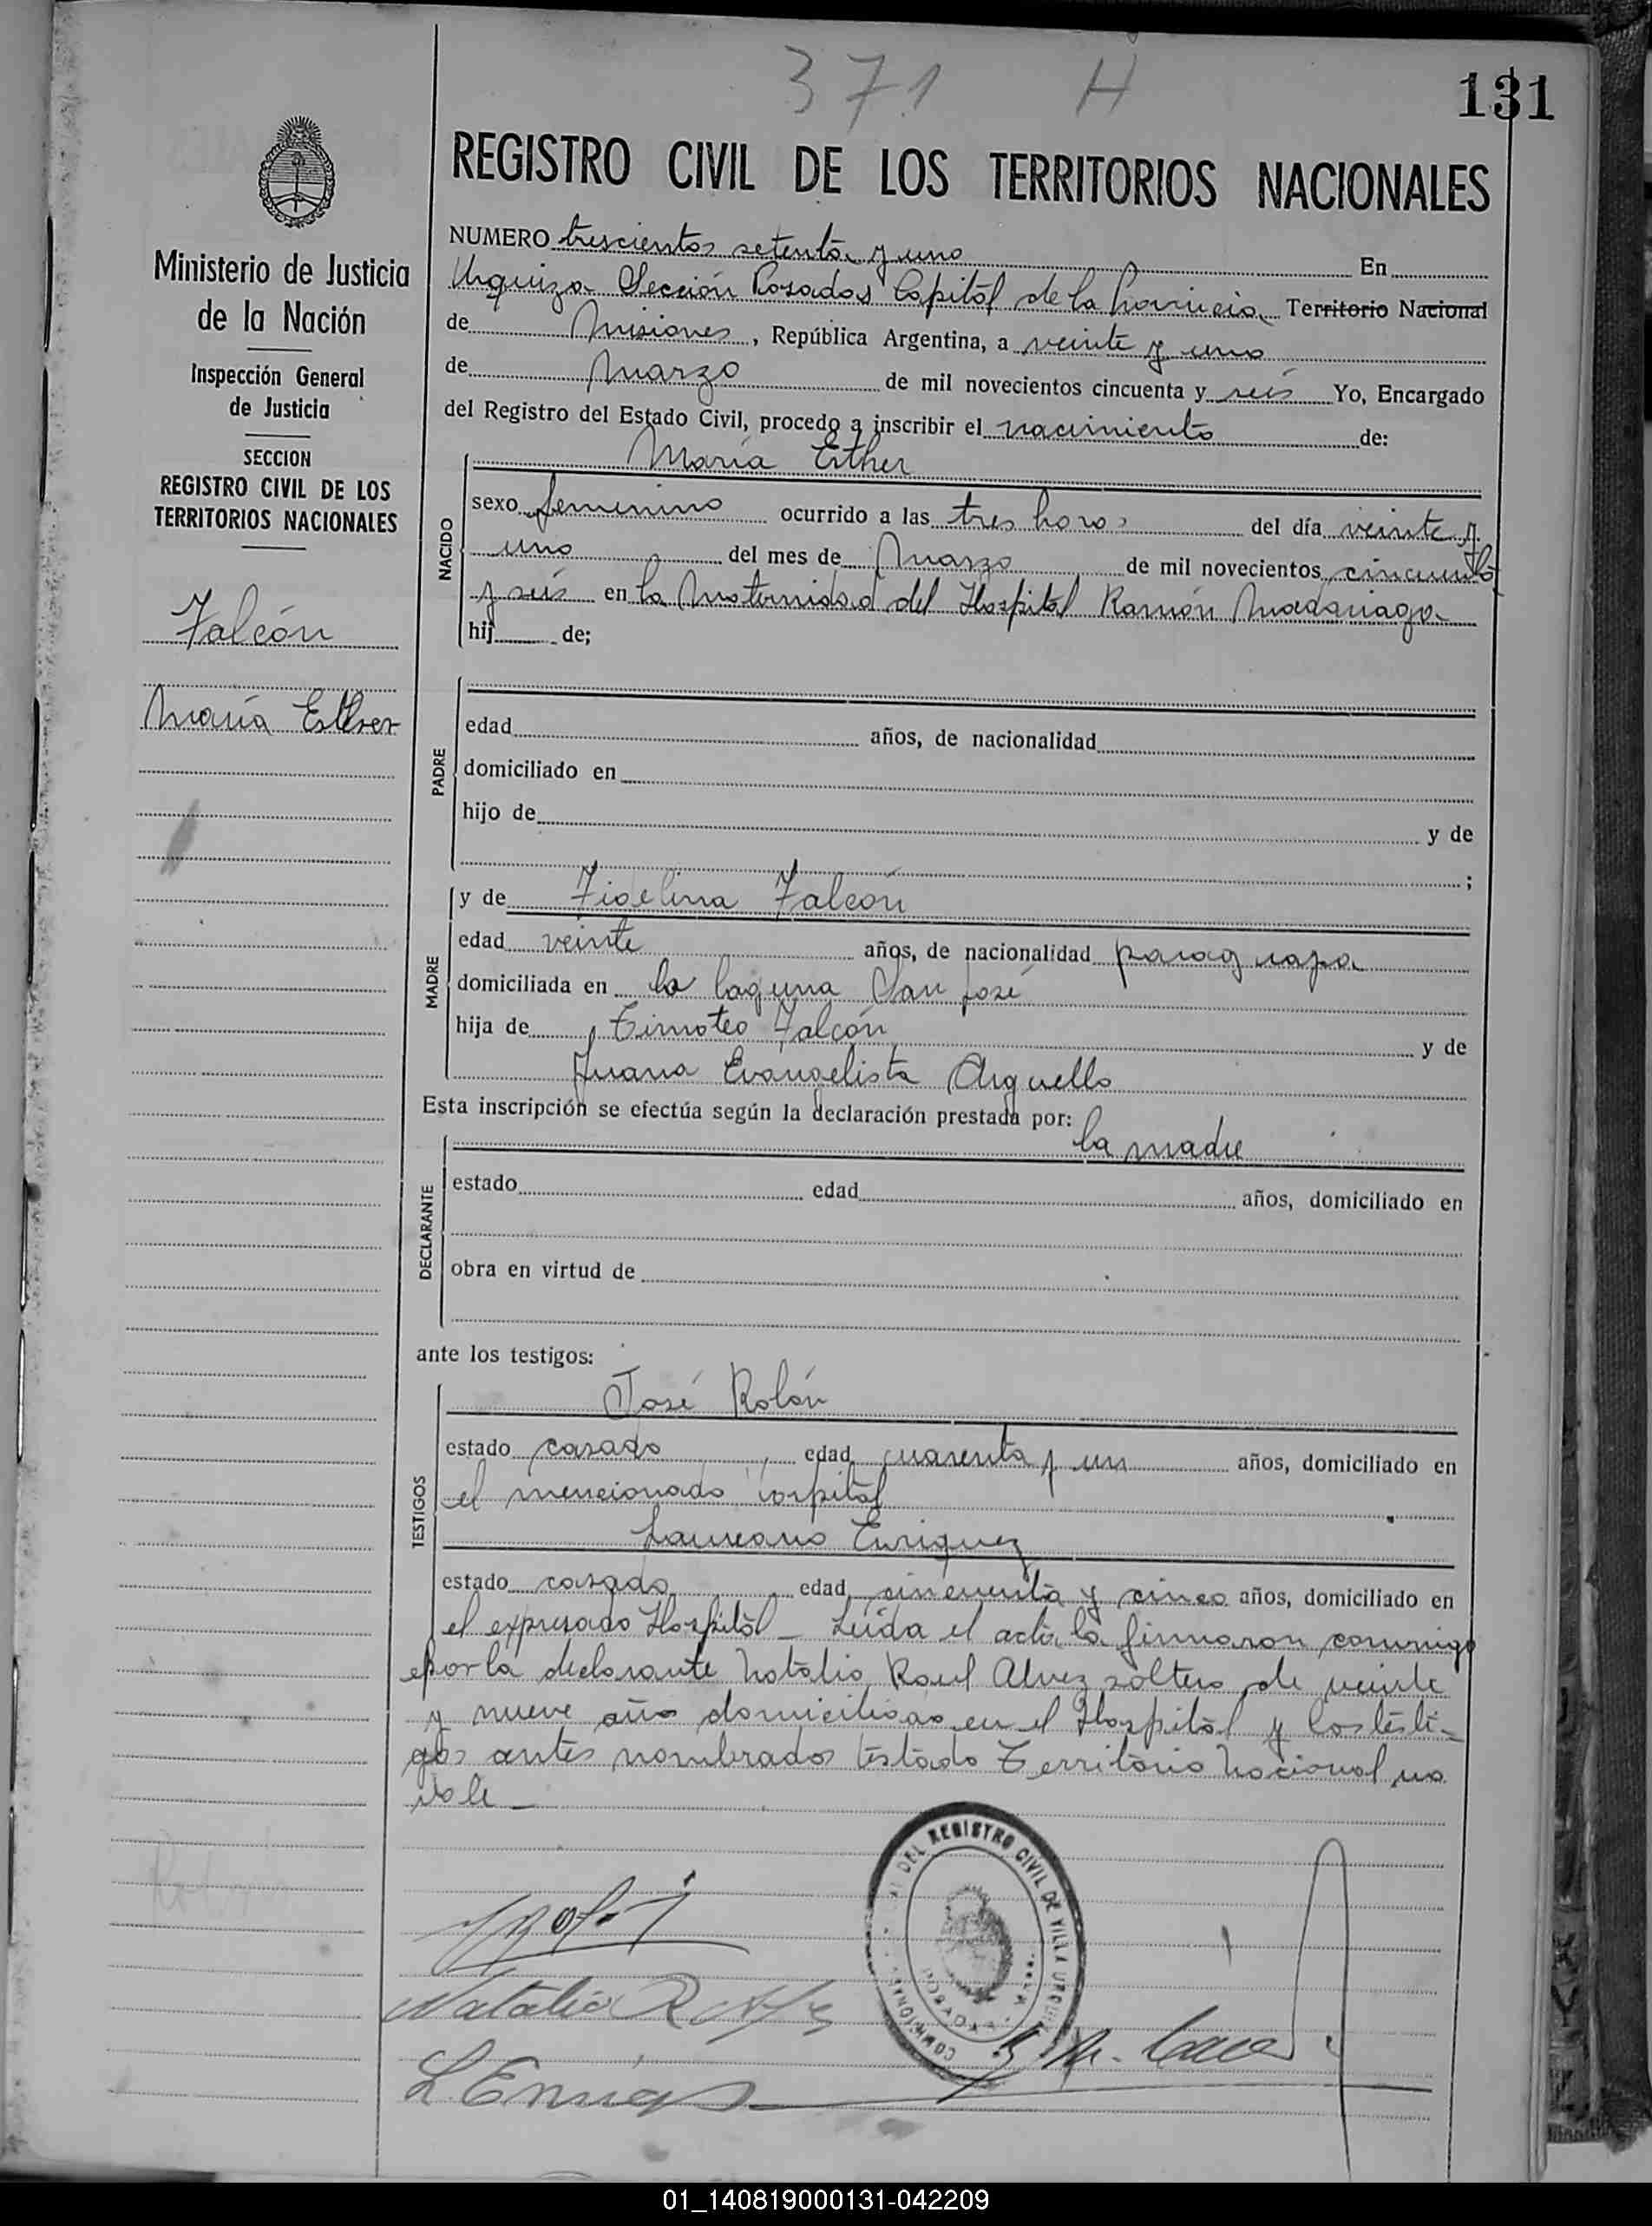 371 H
131
REGISTRO CIVIL DE LOS TERRITORIOS NACIONALES
Ministerio de Justicia
de la Nación
Inspección General
de Justicia
SECCION
REGISTRO CIVIL DE LOS
TERRITORIOS NACIONALES
Falcón
María Esther
NUMERO trescientos setenta y uno En
Urquiza Sección Posadas Capital de la Provincia Territorio Nacional
de Misiones, República Argentina, a veinte y uno
de Marzo de mil novecientos cincuenta y seis Yo, Encargado
del Registro del Estado Civil, procedo a inscribir el nacimiento de:
María Esther
NACIDO
sexo femenino ocurrido a las tres horas del día veinte y
uno del mes de Marzo de mil novecientos cincuenta
y seis en la Maternidad del Hospital Ramón Madariaga
hij de;
PADRE
edad años, de nacionalidad
domiciliado en
hijo de y de
;
MADRE
y de Fidelina Falcón
edad veinte años, de nacionalidad paraguaya
domiciliada en la laguna San José
hija de Timoteo Falcón y de
Juana Evangelista Arguello
Esta inscripción se efectúa según la declaración prestada por:
la madre
DECLARANTE
estado edad años, domiciliado en
obra en virtud de
ante los testigos:
TESTIGOS
José Rolón
estado casado, edad cuarenta y un años, domiciliado en
el mencionado hospital
Laureano Enriquez
estado casado, edad cincuenta y cinco años, domiciliado en
el expresado Hospital - Leída el acta la firmaron conmigo
por la declarante Natalio Raul Alvez soltero de veinte
y nueve años domiciliado en el Hospital y los testi-
gos antes nombrados testado Territorio Nacional no
vale -
DEL REGISTRO CIVIL DE VILLA URQUIZA
Natalio R
L Enriquez
01_140819000131-042209